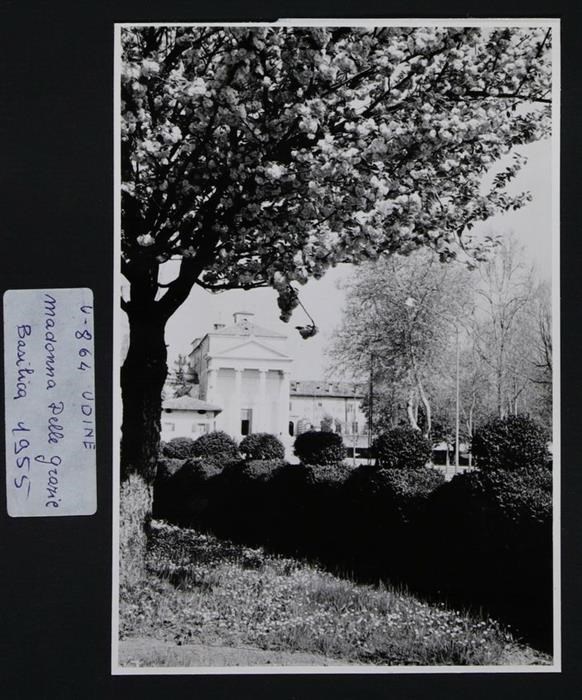 U-864 UDINE
Madonna Delle grazie
Basilica 1955